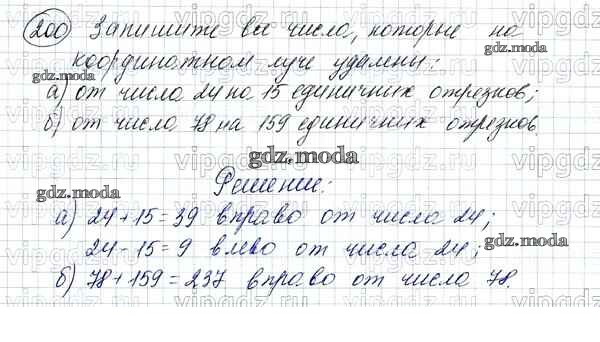 200 Запишите все числа, которые на
координатном луче удалены:
а) от числа 24 на 15 единичных отрезков;
б) от числа 78 на 159 единичных отрезков.
gdz.moda
Решение:
а) 24 + 15 = 39 вправо от числа 24;
24 - 15 = 9 влево от числа 24;
б) 78 + 159 = 237 вправо от числа 78.